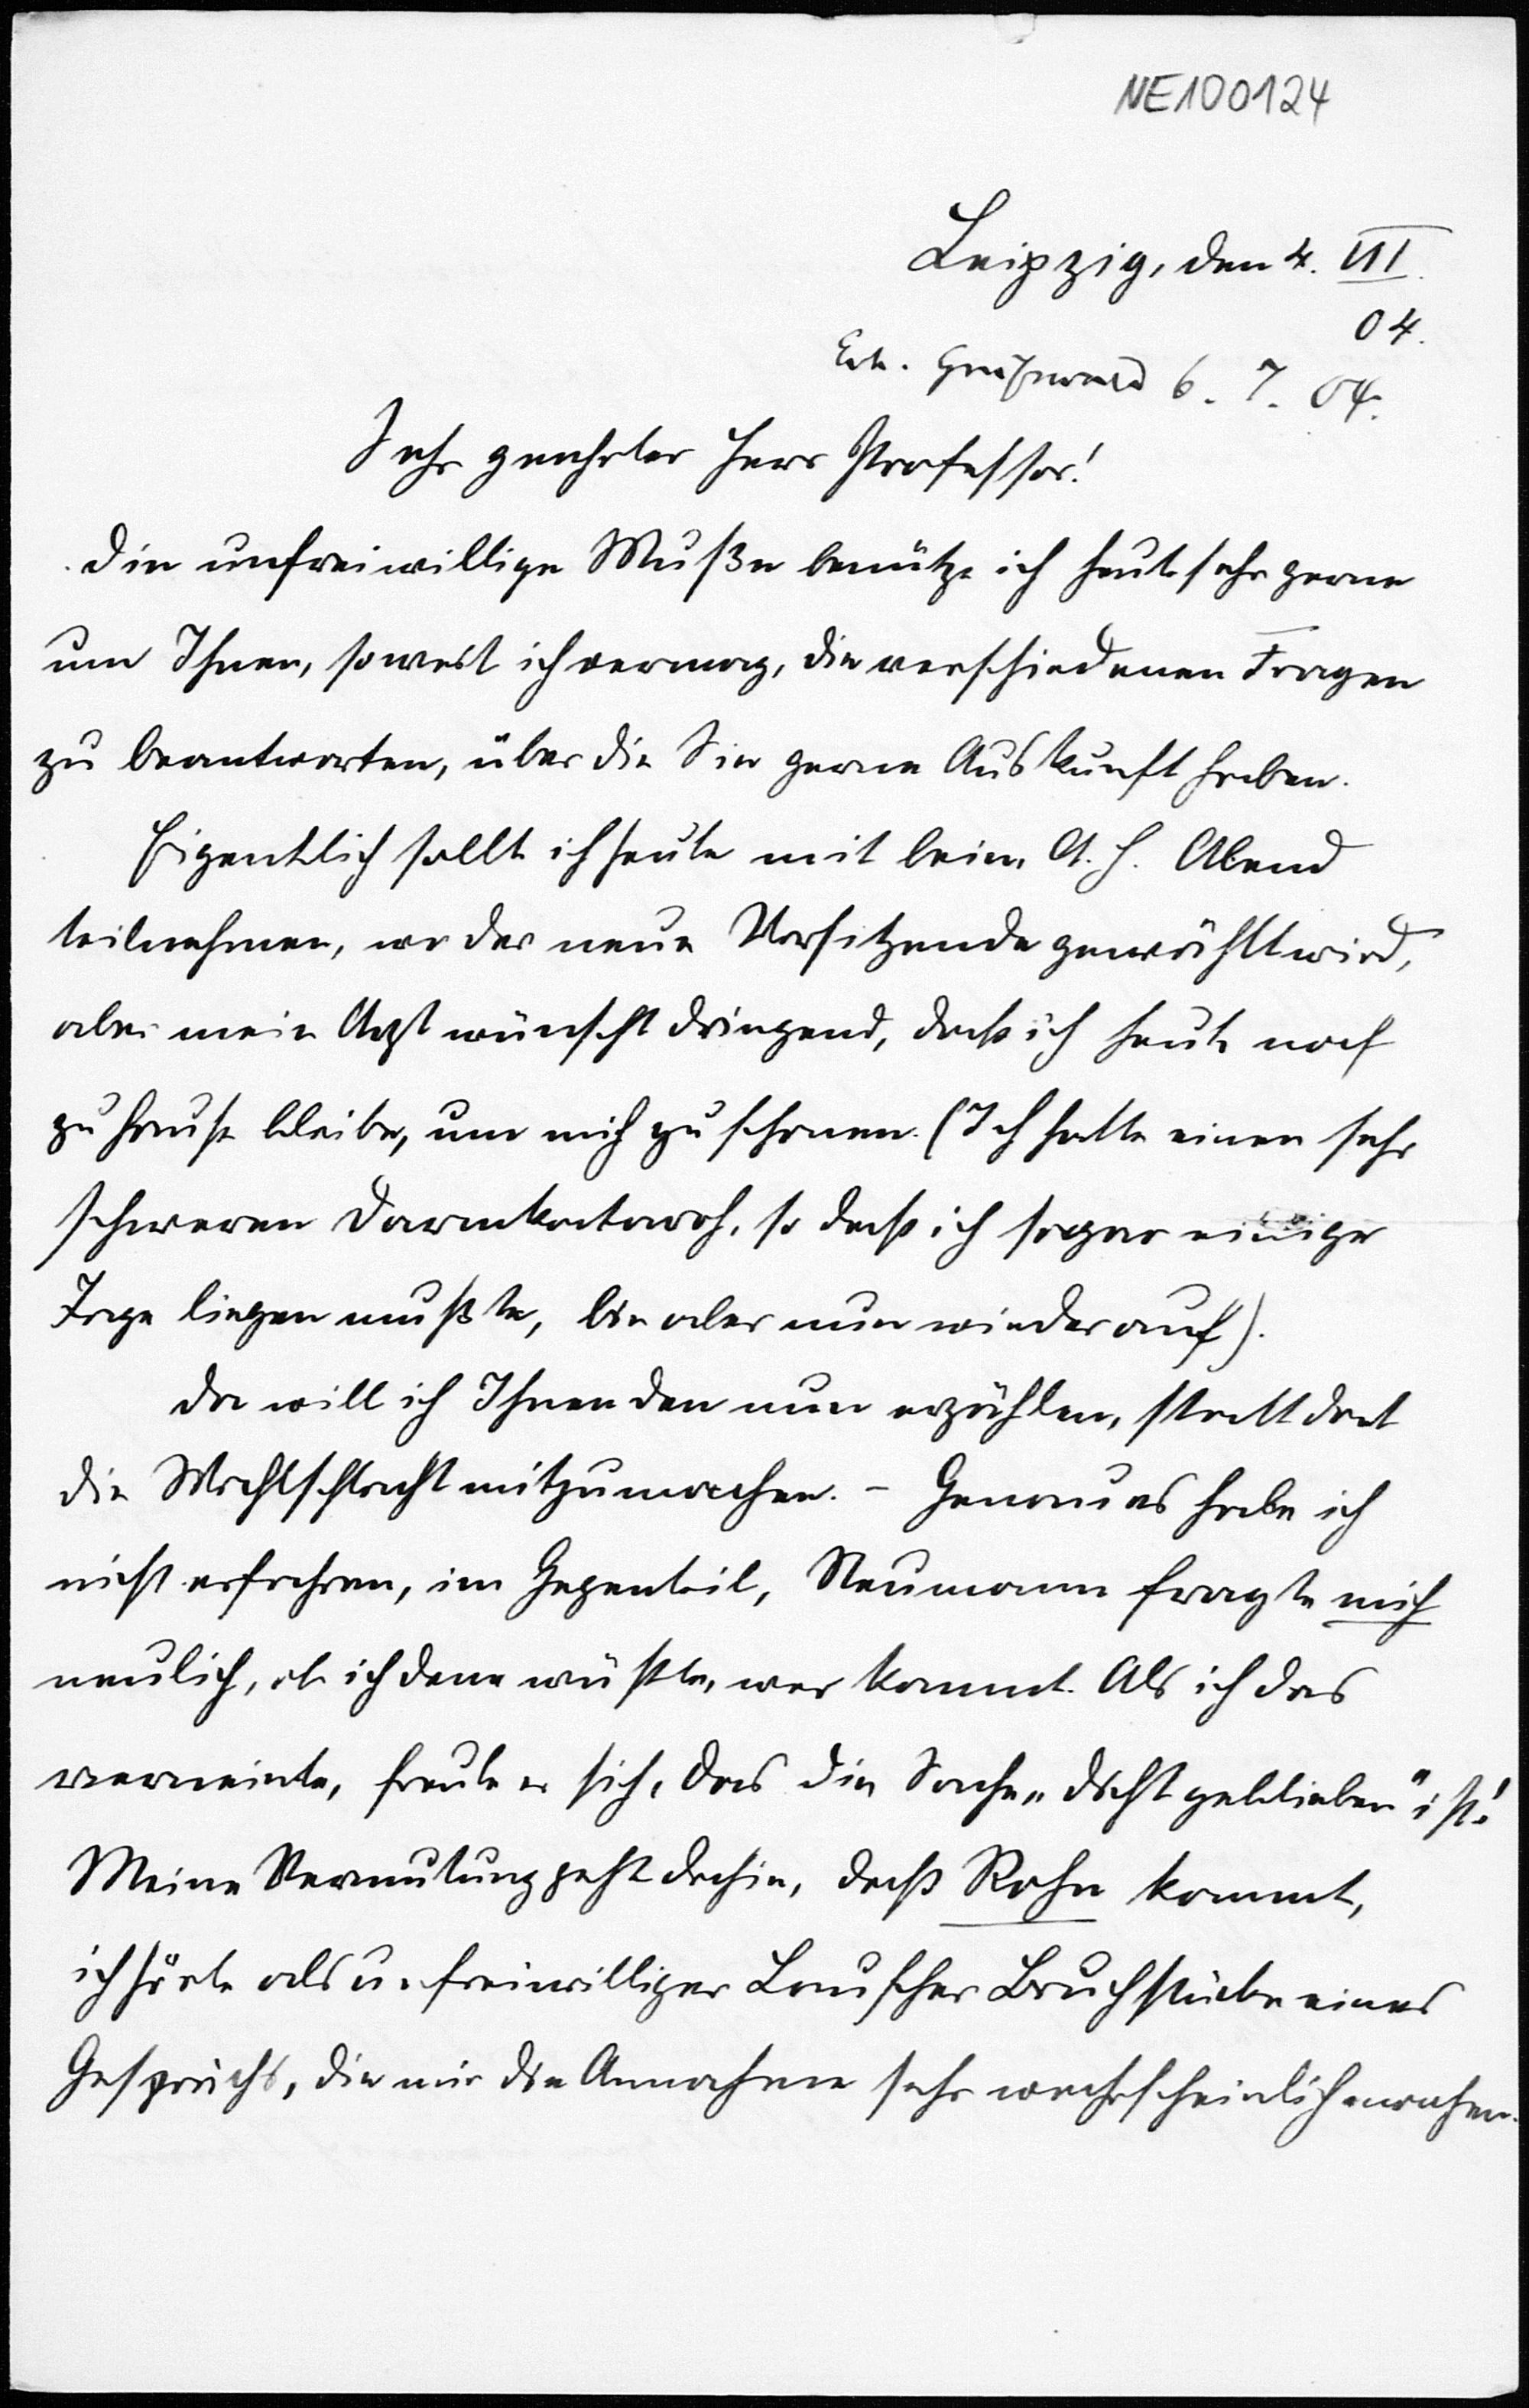 NE100124
Leipzig, den 4. VII.
04.
Erh. Greifswald 6. 7. 04.
Sehr geehrter Herr Professor!
Die unfreiwillige Muße benütze ich heute sehr gerne
um Ihnen, soweit ich vermag, die verschiedenen Fragen
zu beantworten, über die Sie gerne Auskunft haben.
Eigentlich sollte ich heute mit beim A. H. Abend
teilnehmen, wo der neue Vorsitzende gewählt wird,
aber mein Arzt wünscht dringend, daß ich heute noch
zu Hause bleibe, um mich zu schonen. (Ich hatte einen sehr
schweren Darmkatarrh, so daß ich sogar einige
Tage liegen mußte, bin aber nun wieder auf).
Da will ich Ihnen den nun erzählen, statt dort
die Wahlschlacht mitzumachen. - Genaues habe ich
nicht erfahren, im Gegenteil, Neumann fragte mich
neulich, ob ich denn wüßte, wer kommt. Als ich das
verneinte, freute er sich, das die Sache "dicht geblieben" ist!
Meine Vermutung geht dahin, daß Rohn kommt,
ich hörte als unfreiwilliger Lauscher Bruchstücke eines
Gesprächs, die mir die Annahme sehr wahrscheinlich machen.